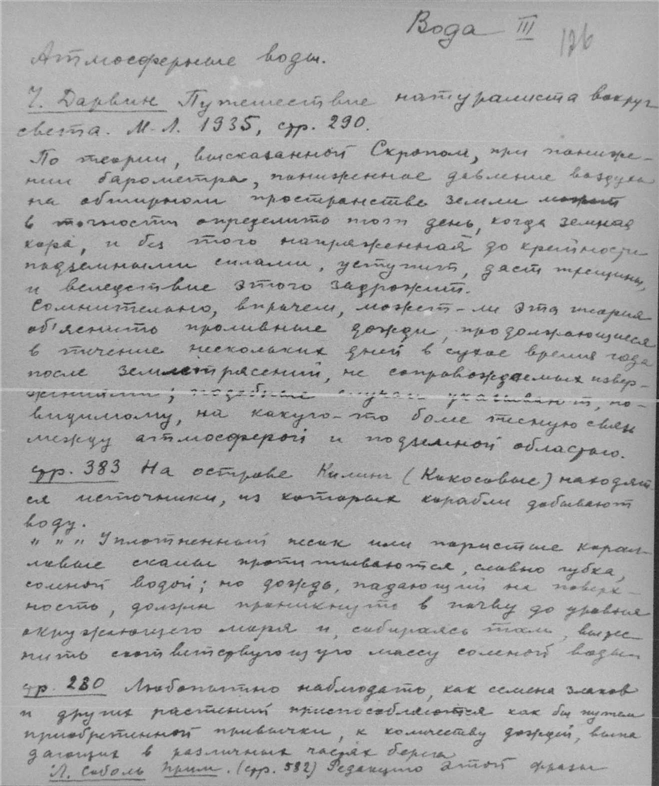 Вода III
126
Атмосферные воды.
Ч. Дарвин Путешествие натуралиста вокруг
света. М-Л. 1935, стр. 290.
По теории, высказанной Скропом, при пониже-
нии барометра, пониженное давление воздуха
на обширном пространстве земли может
в точности определить тот день, когда земная
кора, и без того напряженная до крайности
подземными силами, уступит, даст трещины,
и вследствие этого задрожит.
Сомнительно, впрочем, может-ли эта теория
об'яснить проливные дожди, продолжающиеся
в течение нескольких дней в сухое время года
после землетрясений, не сопровождаемых извер-
жениями; подобные случаи указывают, по-
видимому, на какую-то более тесную связь
между атмосферой и подземной областью.
стр. 383 На острове Килинг (Кокосовые) находят
ся источники, из которых корабли добывают
воду.
" " " Уплотненный песок или пористые корал-
ловые скалы пропитываются, словно губка,
соленой водой; но дождь, падающий на поверх-
ность, должен проникнуть в почву до уровня
окружающего моря и, собираясь там, вытес-
нить соответствующую массу соленой воды
стр. 280 Любопытно наблюдать, как семена злаков
и других растений приспособляются как бы путем
приобретенной привычки, к количеству дождей, выпа
дающих в различных частях берега
Л. Соболь Прим. (стр. 582) Редакцию этой фразы